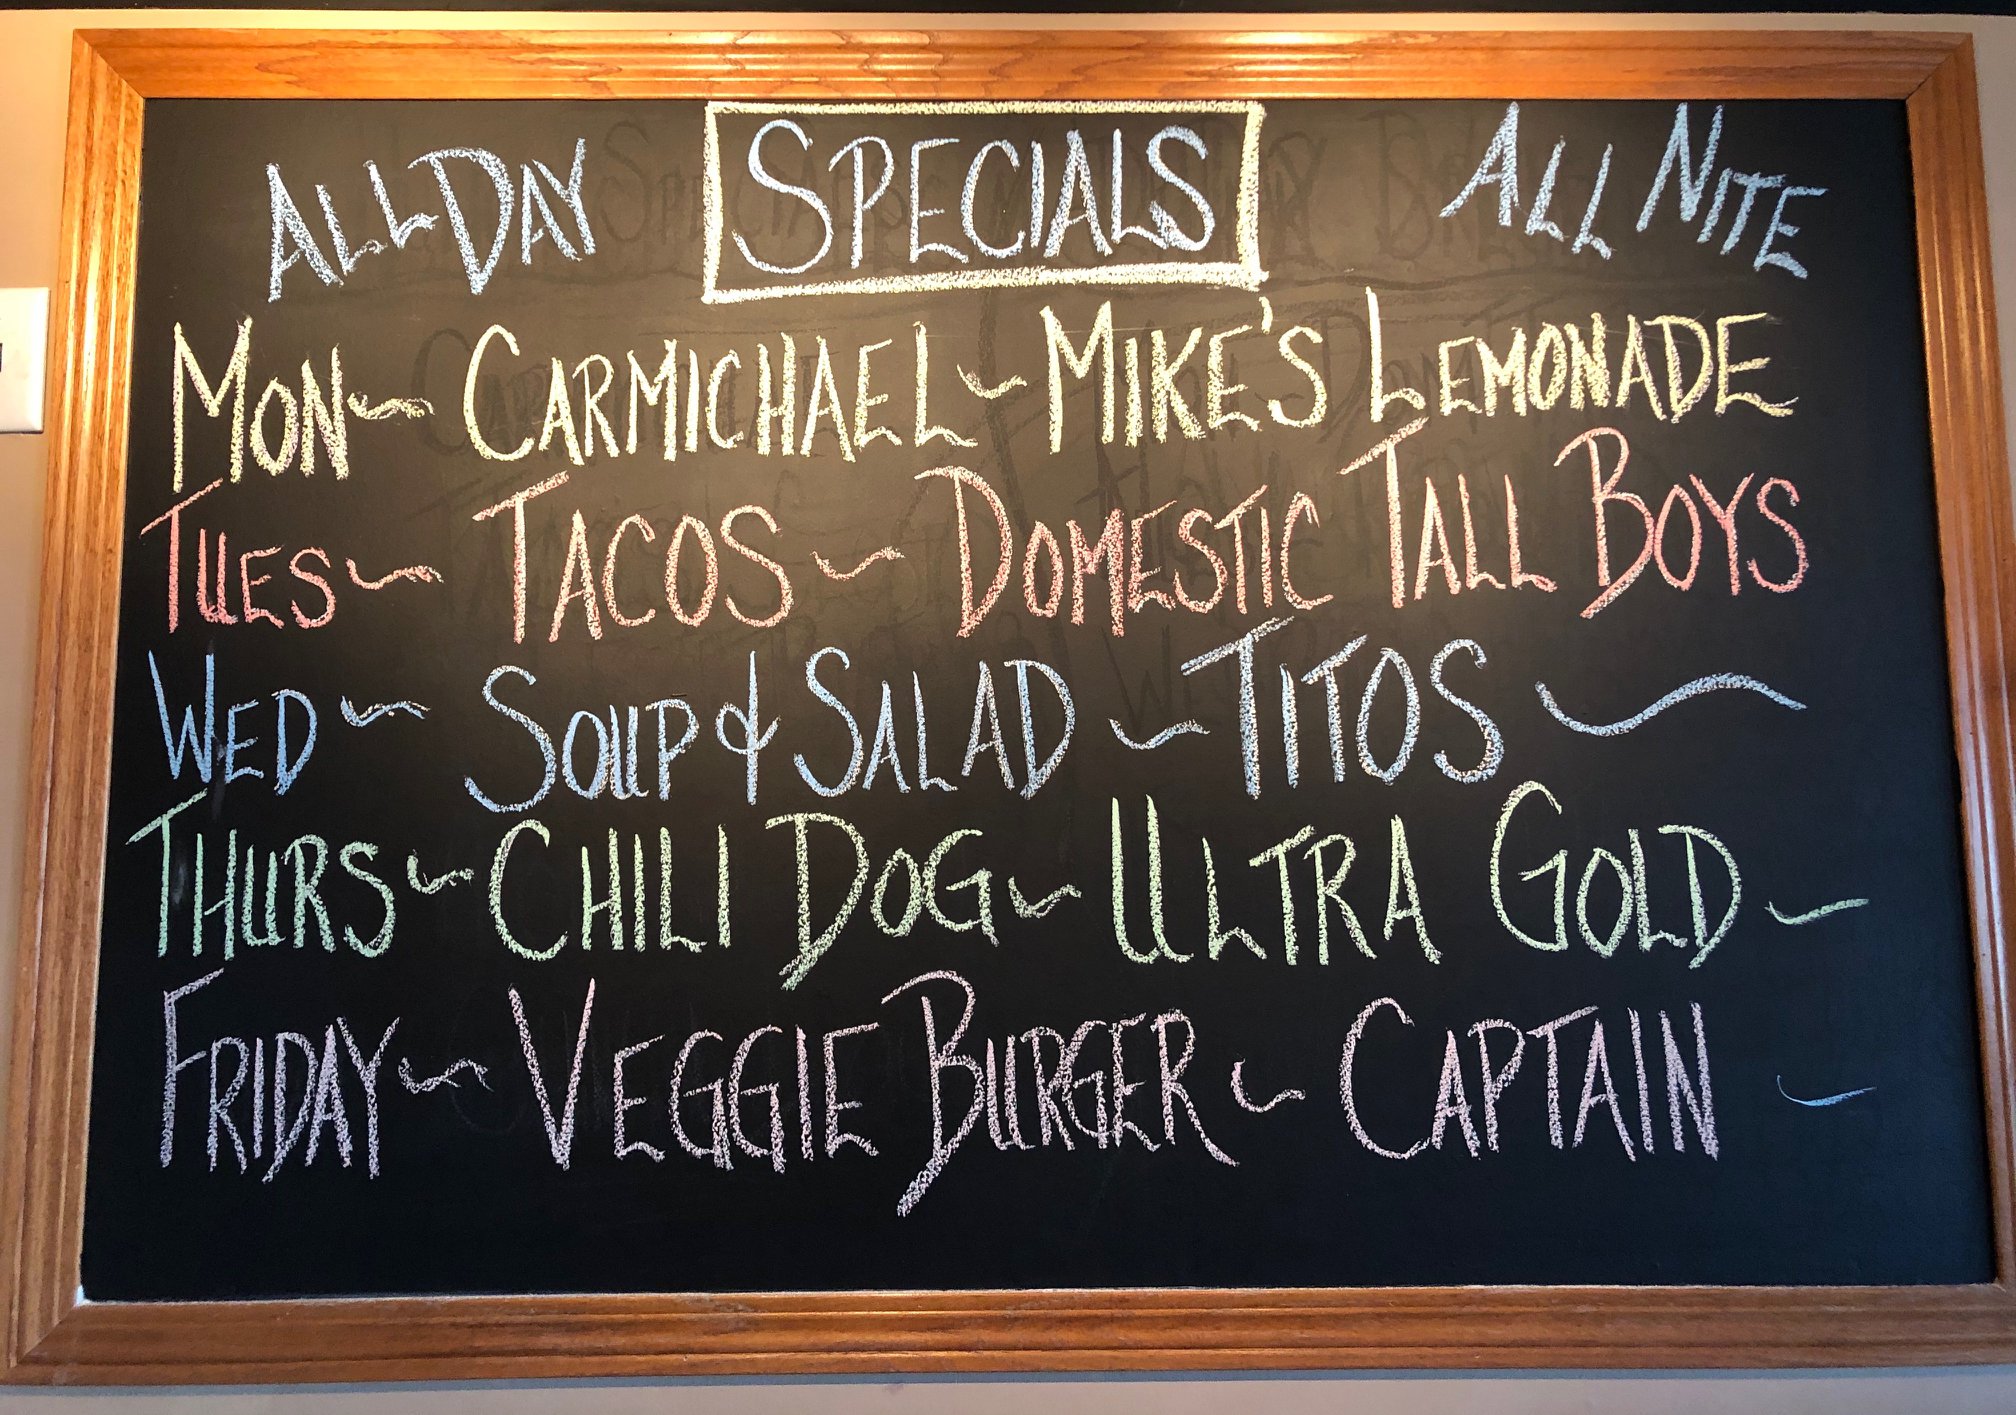 ALL DAY SPECIALS ALL NITE
MON ~ CARMICHAEL ~ MIKE'S LEMONADE
TUES ~ TACOS ~ DOMESTIC TALL BOYS
WED ~ SOUP & SALAD ~ TITOS ~
THURS ~ CHILI DOG ~ ULTRA GOLD ~
FRIDAY ~ VEGGIE BURGER ~ CAPTAIN ~